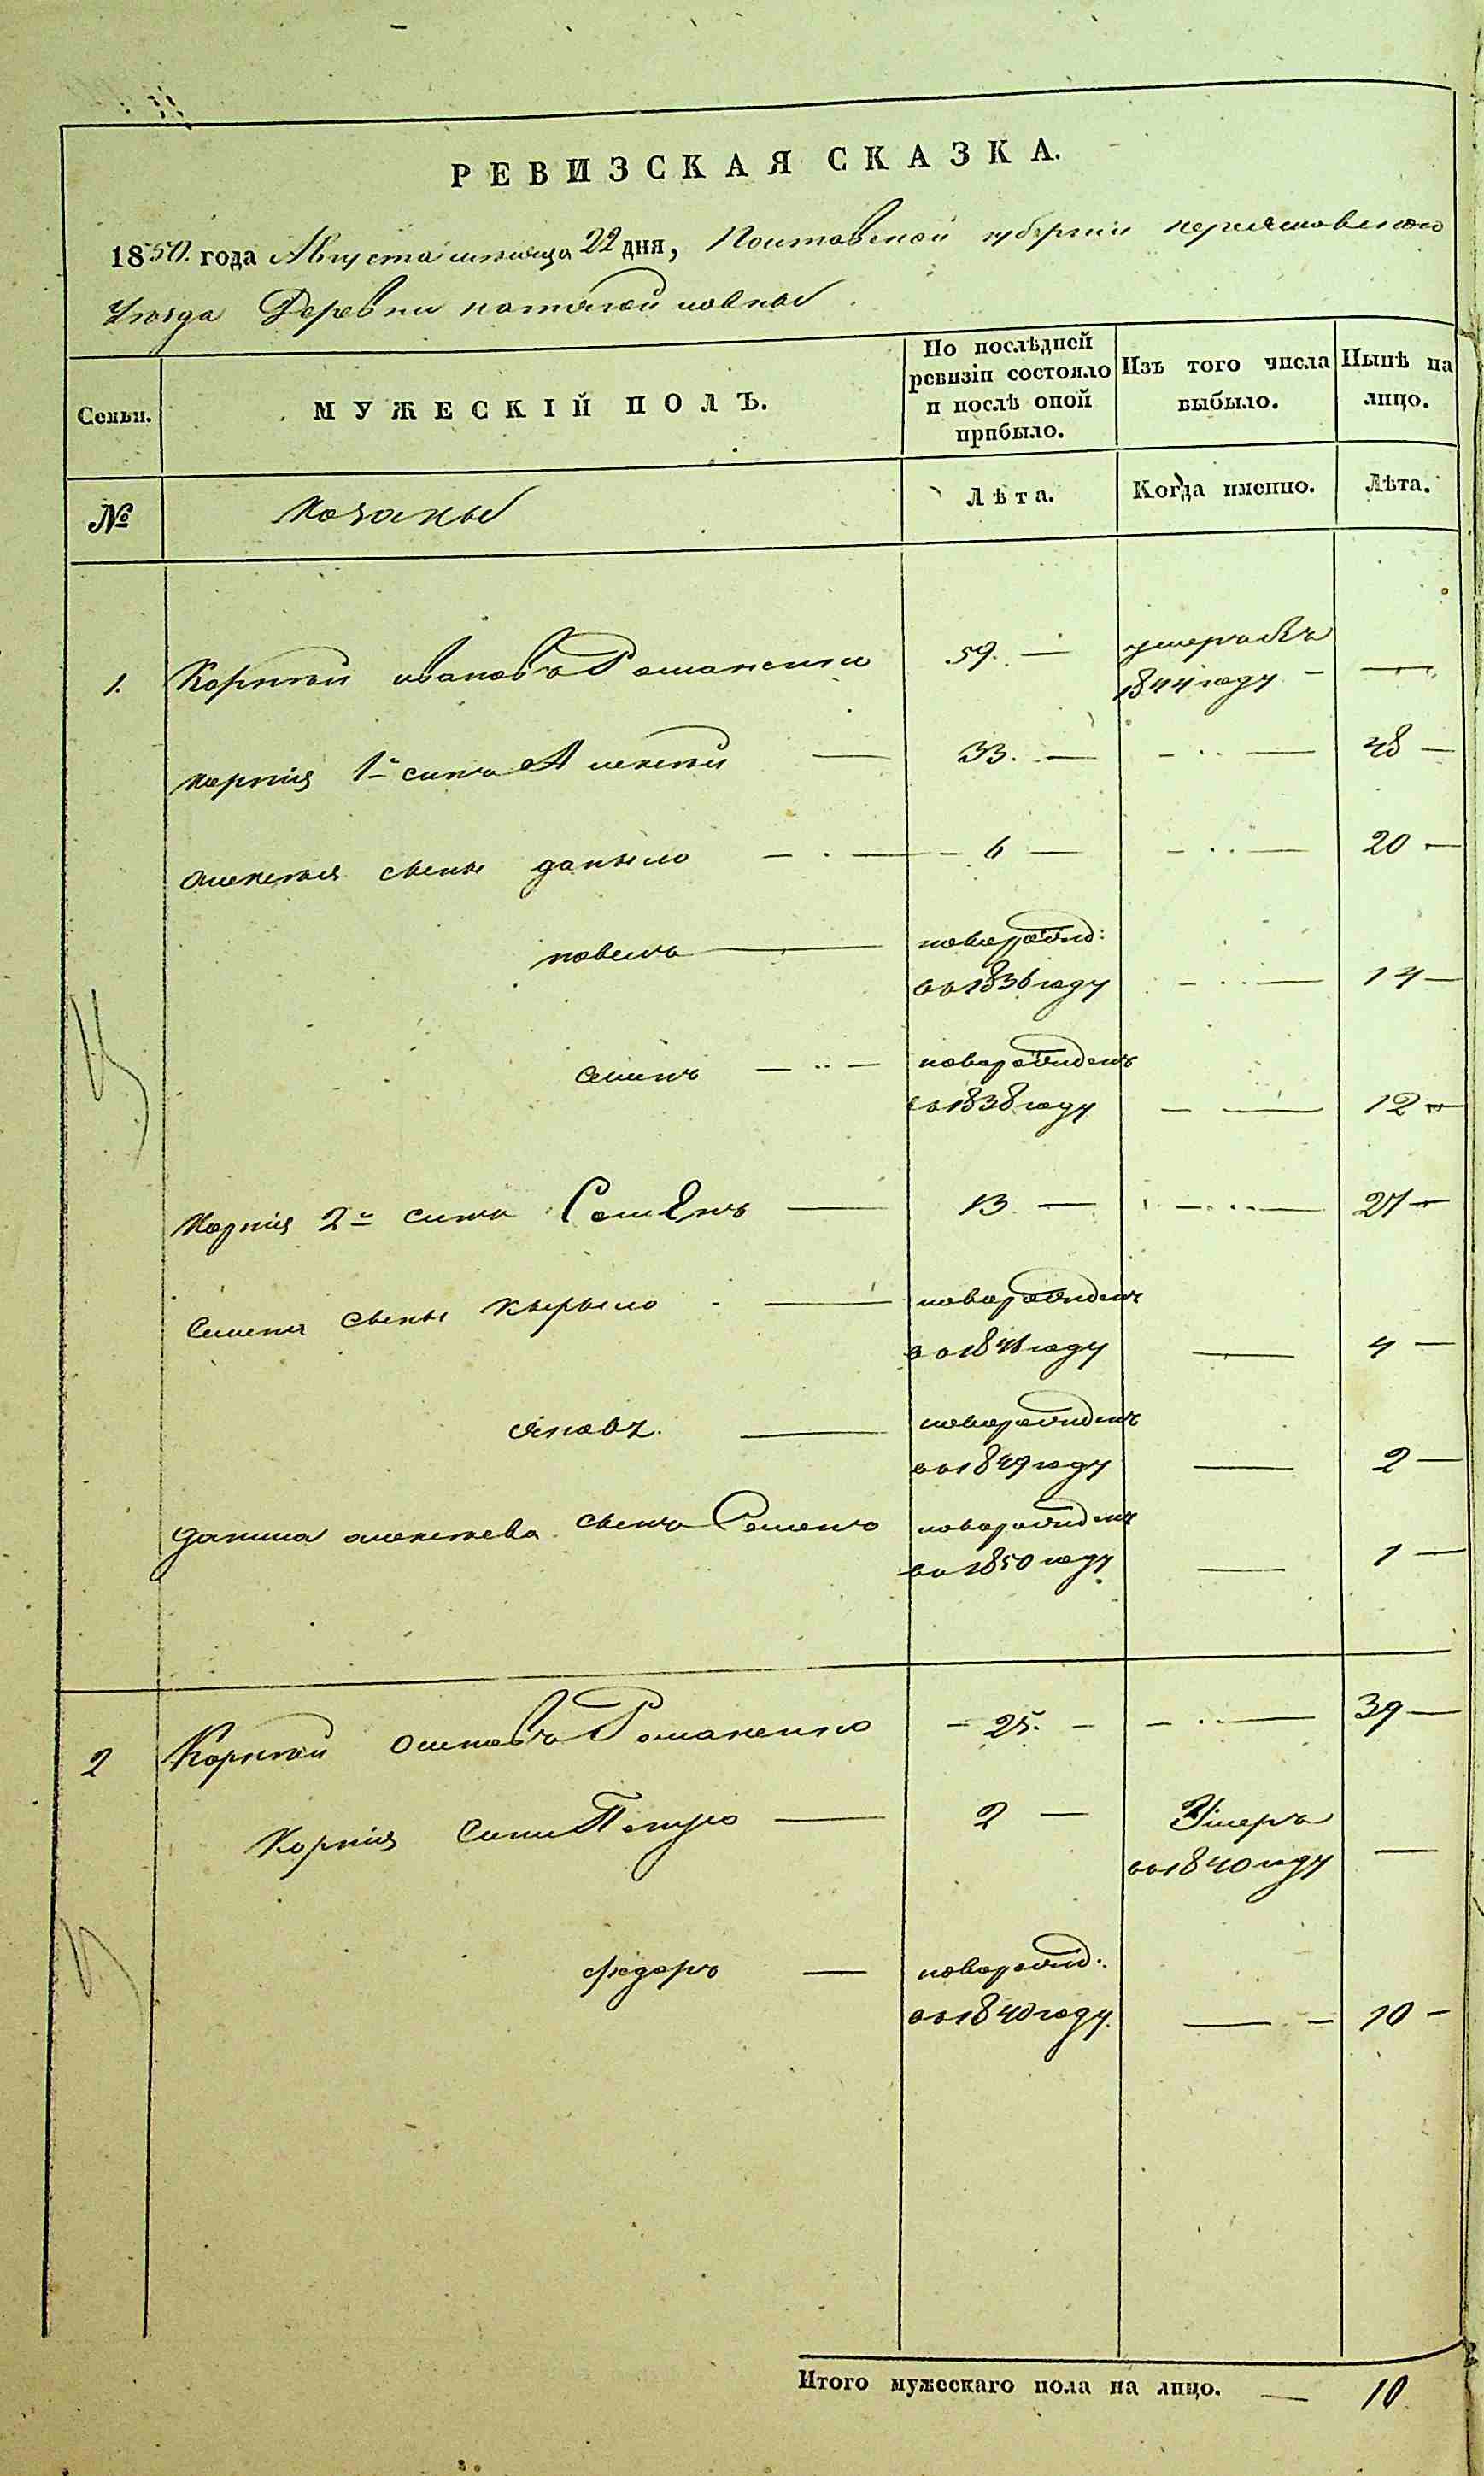 РЕВИЗСКАЯ СКАЗКА.
1850. года Августа месяца 22 дня, Полтавской губернии переяславского
Уезда Деревни
Семьи. МУЖЕСКІЙ ПОЛЪ. По послѣдней ревизіи состояло и послѣ оной прибыло. Изъ того числа выбыло. Нынѣ на лицо.
№ Козаки Лѣта. Когда именно. Лѣта.
1. Корнѣй ивановъ Романенко 59. — умеръ въ
1844 году — —
корнія 1й синъ Алексѣй — 33. — — 48 —
алексѣя сыны даныло — 6 — — 20 —
павелъ — новорожд:
во 1836 году — 14 —
семенъ — новорожденъ
во 1838 году — 12 —
Корнія 2й синъ Семенъ — 13 — — 27 —
Семена сыны кырыло — новорожденъ
во 1846 году — 4 —
яковъ. — новорожденъ
во 1849 году — 2 —
данила алексѣева сынъ Семенъ новорожденъ
во 1850 году. — 1 —
2 Корнѣй Романенко — 25. — — 39 —
Корнія синъ Петро — 2 — Умеръ
во 1840 году —
федоръ — новорожд:
во 1840 году. — 10 —
Итого мужескаго пола на лицо. — 10